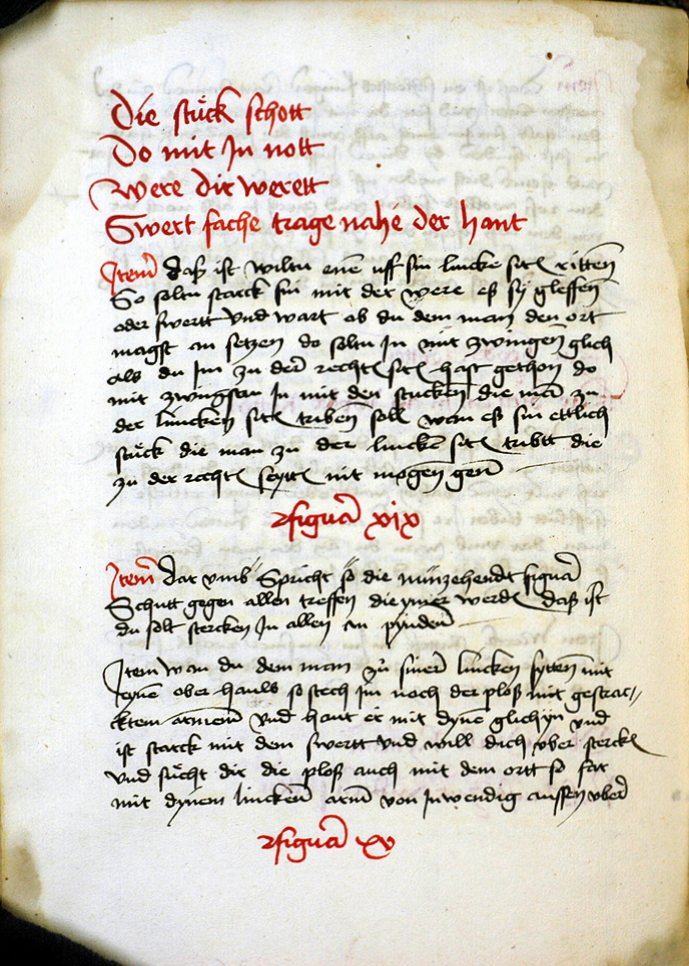 Die stuck schott
Do mit In nott
Were die werett
Swert fache trage nahe der hant
Item daß ist wiltu ene uff sin lincke sitē rittē
So soltu starck sin mit der were eß sÿ gleffen
oder swertt vnd wart ob du dem man den ort
magst an setzen do soltu In mit zwingen glich
als du Im zu der rechtē sitē hast gethon do
mit zwingstu In mit den stucken die mā zu
der lincken sitē tribē soll wan eß sin ettlich
stuck die man zu der linckē sitē tribtt die
zu der rechtē seyttē nit mogen gen
figura xix
Item dar vmb Spricht so die nünzehendt figura
Schutt gegen allen treffen die ymer werdē daß ist
du solt stercken In allen an pynden
Item wan du dem man zu siner lincken sytten mit
eyne ober hauls so stech im noch der ploß mit gestrac//
cktem armen vnd haut er mit dyne glich yn vnd
ist starck mit dem swertt vnd will dich vber sterckē
vnd sucht dir die ploß auch mit dem ortt so far
mit dynem linckem arm von Inwendig aussen vber
figura xx